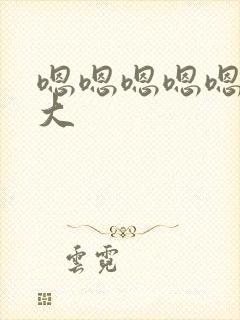 嗯嗯嗯嗯嗯
大
雲霓